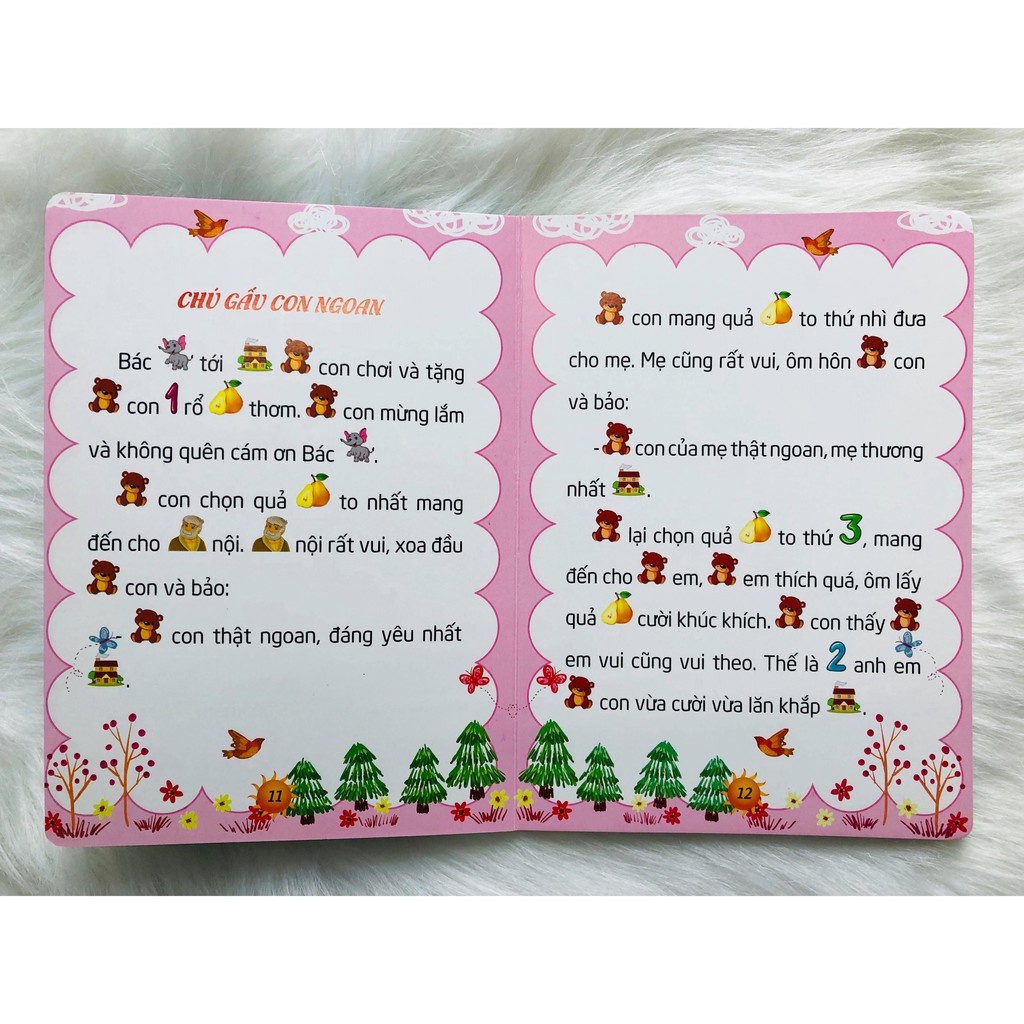 CHÚ GẤU CON NGOAN
Bác tới con chơi và tặng
con 1 rổ thơm. con mừng lắm
và không quên cám ơn Bác .
con chọn quả to nhất mang
đến cho nội. nội rất vui, xoa đầu
con và bảo:
- con thật ngoan, đáng yêu nhất
.
11
con mang quả to thứ nhì đưa
cho mẹ. Mẹ cũng rất vui, ôm hôn con
và bảo:
- con của mẹ thật ngoan, mẹ thương
nhất .
lại chọn quả to thứ 3, mang
đến cho em, em thích quá, ôm lấy
quả cười khúc khích. con thấy
em vui cũng vui theo. Thế là 2 anh em
con vừa cười vừa lăn khắp .
12